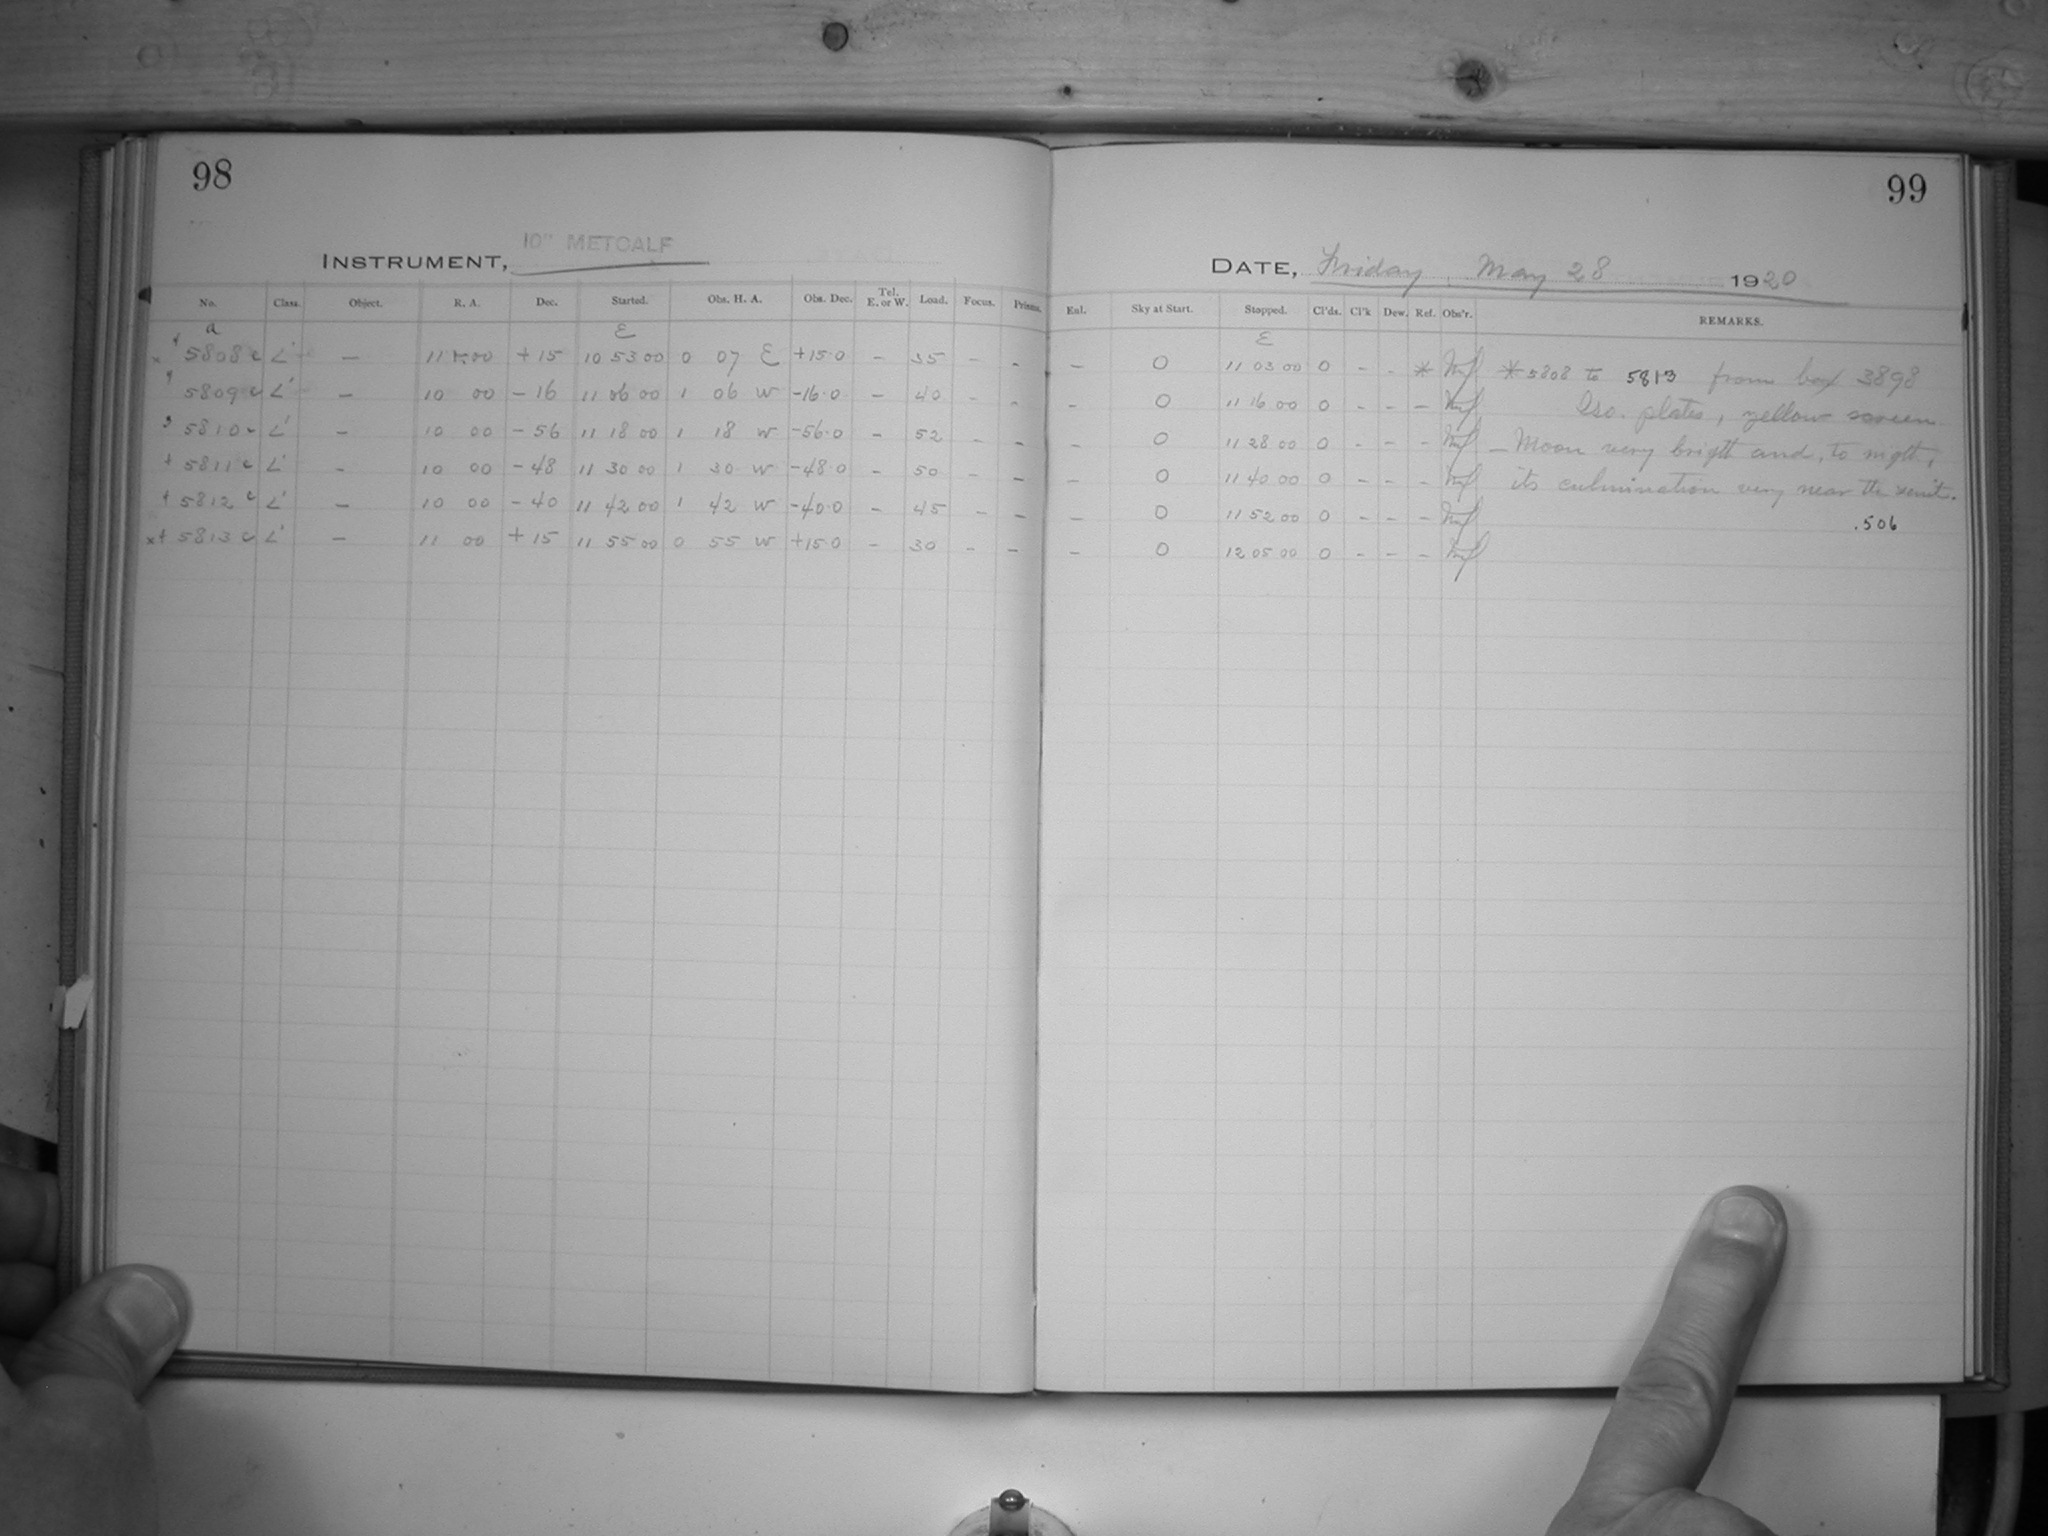 98
INSTRUMENT, 10" METCALF
No. Class. Object. R. A. Dec. Started. Obs. H. A. Obs. Dec. Tel. E. or W. Load. Focus. Prisms.
a E
x 5808 c L' — 11 00 +15 10 53 00 0 07 E +15.0 – 35 – –
5809 c L' — 10 00 –16 11 06 00 1 06 W –16.0 – 40 – –
5810 c L' — 10 00 –56 11 18 00 1 18 W –56.0 – 52 – –
+ 5811 c L' – 10 00 –48 11 30 00 1 30 W –48.0 – 50 – –
+ 5812 c L' – 10 00 –40 11 42 00 1 42 W –40.0 – 45 – –
x+ 5813 c L' – 11 00 +15 11 55 00 0 55 W +15.0 – 30 – –
99
DATE, Friday, May 28 1920
Enl. Sky at Start. Stopped. Cl'ds. Cl'k Dew. Ref. Obs'r. REMARKS.
E
– 0 11 03 00 0 – – * * 5808 to 5813 from box 3898
– 0 11 16 00 0 – – – Iso. plates, yellow screen
– 0 11 28 00 0 – – – – Moon very bright and, to night,
– 0 11 40 00 0 – – – its culmination very near the zenit.
– 0 11 52 00 0 – – – .506
– 0 12 05 00 0 – – –